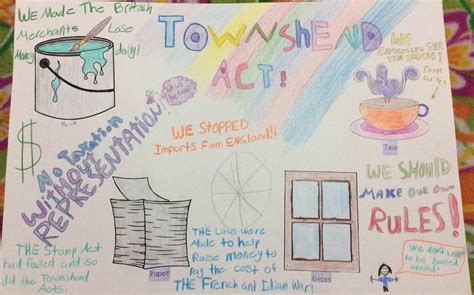 WE MADE THE BRITISH
Merchants Lose
Money daily!
Paint
TOWNSHEND
ACT!
WE
Except
for tea
Tea
$
No Taxation
WITHOUT
REPRESENTATION!
WE STOPPED
Imports From ENGLAND!!
WE SHOULD
MAKE OUR OWN
RULES!
THE Stamp Act
had failed and so
did the Townshend
Acts.
Paper
THE Laws were
Made to help
Raise money to
Pay the cost of
THE French and Idian War!
Glass
we don't want
to be bossed
around!